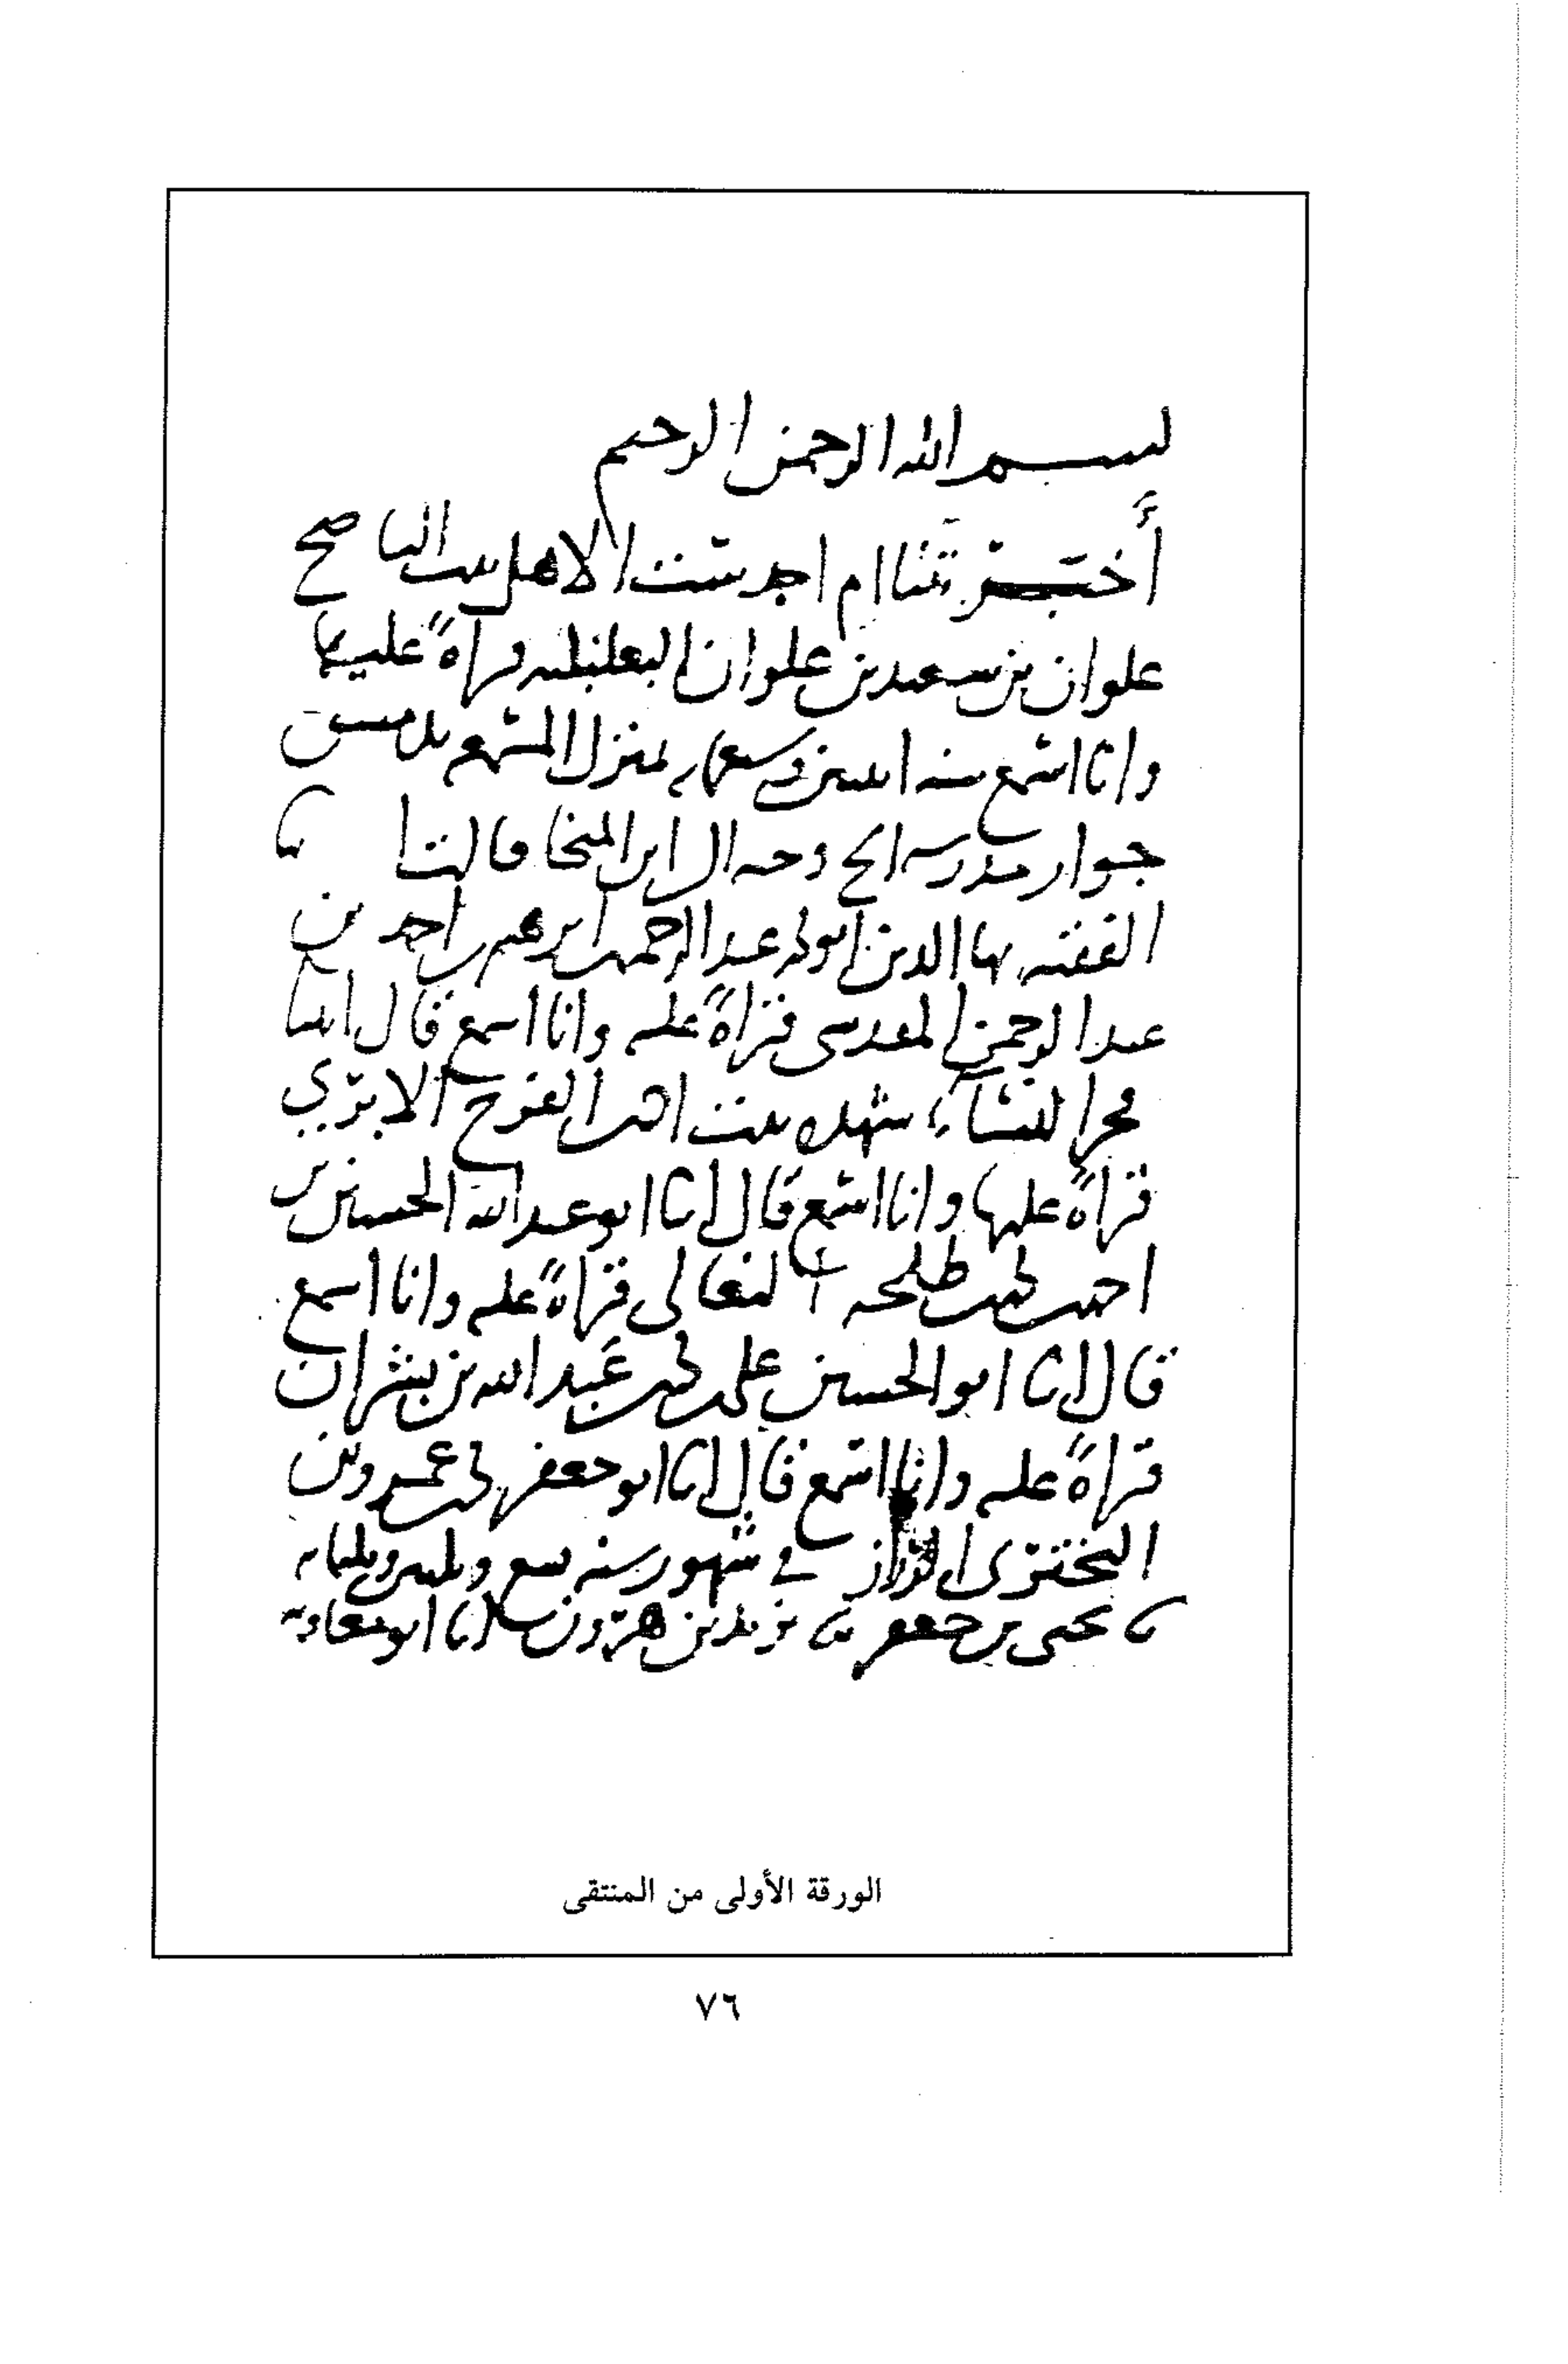 بسم الله الرحمن الرحيم
أخبرتنا ام احمد ست الاهل بنت الناصح
علوان بن سعيد بن علوان البعلبكيه قراةً عليها
وانا اسمع سنه اثنين وسبعمايه بمنزل المسمع بدمشق
جوار مدرسه ابن المنجا قالت انا
الفقيه بها الدين ابو محمد عبد الرحمن بن ابرهيم بن احمد بن
عبد الرحمن المقدسي قراةً عليه وانا اسمع قال انبانا
فخر النساء شهده بنت احمد بن الفرج الابري
قراةً عليها وانا اسمع قال انا ابو عبد الله الحسين بن
احمد بن محمد بن طلحه النعالي قراةً عليه وانا اسمع
قال انا ابو الحسين علي بن محمد بن عبد الله بن بشران
قراةً عليه وانا اسمع قال انا ابو جعفر محمد بن عمرو بن
البختري الرزاز في شهور سنه تسع وثلثين وثلثمايه
ثنا يحيى بن جعفر ثنا يزيد بن هرون انا ابو معاويه
الورقة الأولى من المنتقى
٧٦